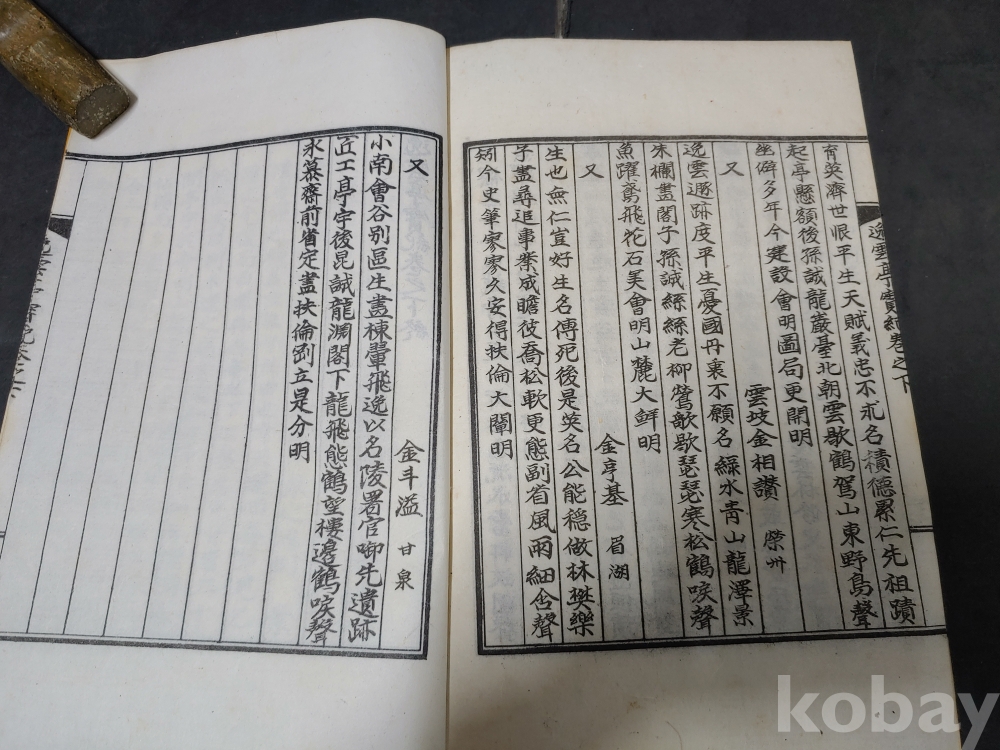 逸雲亭實紀卷之下
育英濟世恨平生天賦義忠不氶名積德累仁先祖蹟
起亭懸額後孫誠龍巖臺北朝雲歇鶴駕山東野鳥聲
幽僻多年今建設會明圖局更開明
又 雲坡金相讚 榮州
逸雲遯跡度平生憂國丹衷不願名綠水靑山龍潭景
朱欄畫閣子孫誠絲絲老柳鶯歌歇瑟瑟寒松鶴唳聲
魚躍鳶飛花石美會明山麓大鮮明
又 金亨基 眉湖
生也無仁豈好生名傳死後是英名公能穩做林樊樂
子盡尋追事業成瞻彼喬松軟更態副省風雨細含聲
矧今史筆寥寥久安得扶倫大闡明
又 金斗溢 甘泉
小南會谷別區生畫棟翬飛逸以名陵署官啣先遺跡
匠工亭宇後昆誠龍淵閣下龍飛態鶴望樓邊鶴唳聲
永慕齋前省定盡扶倫刱立是分明
kobay